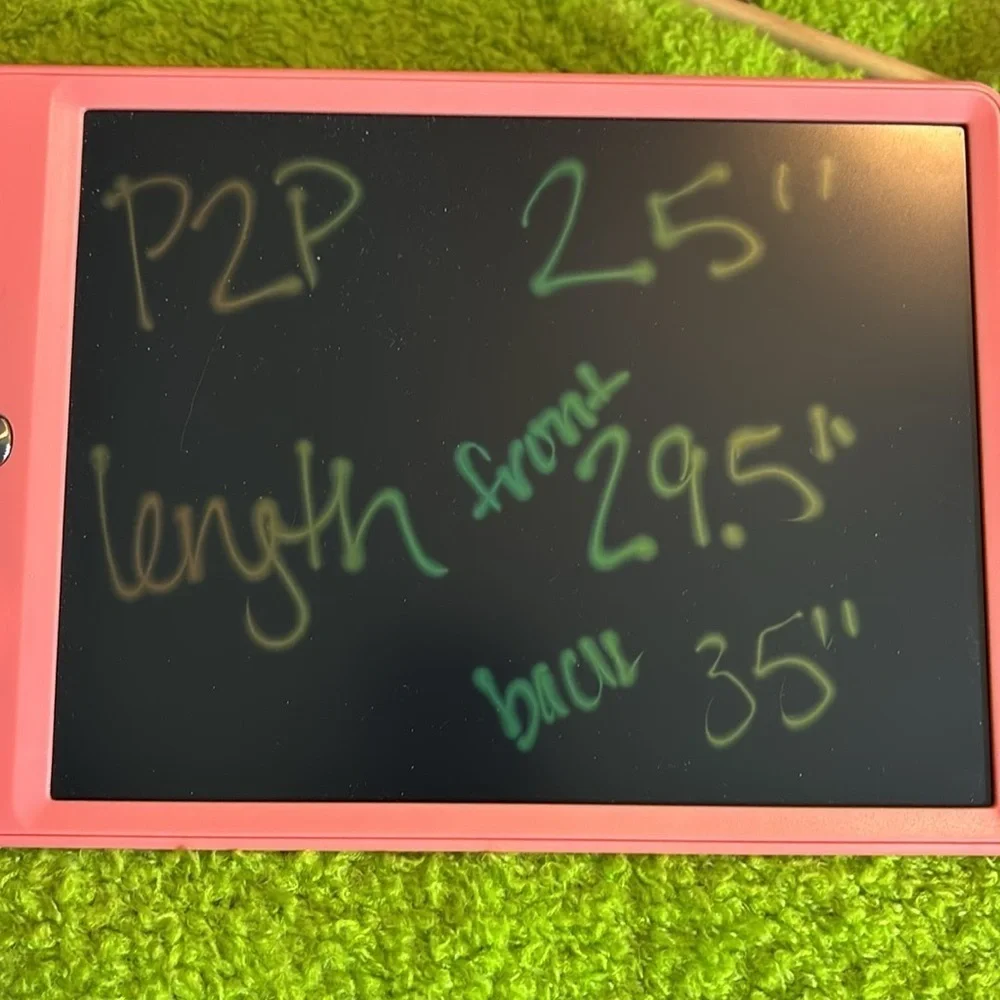 P2P 25"
length front 29.5"
back 35"